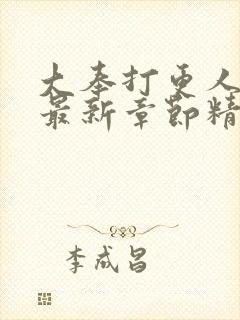 大奉打更人
最新章节精
李成昌